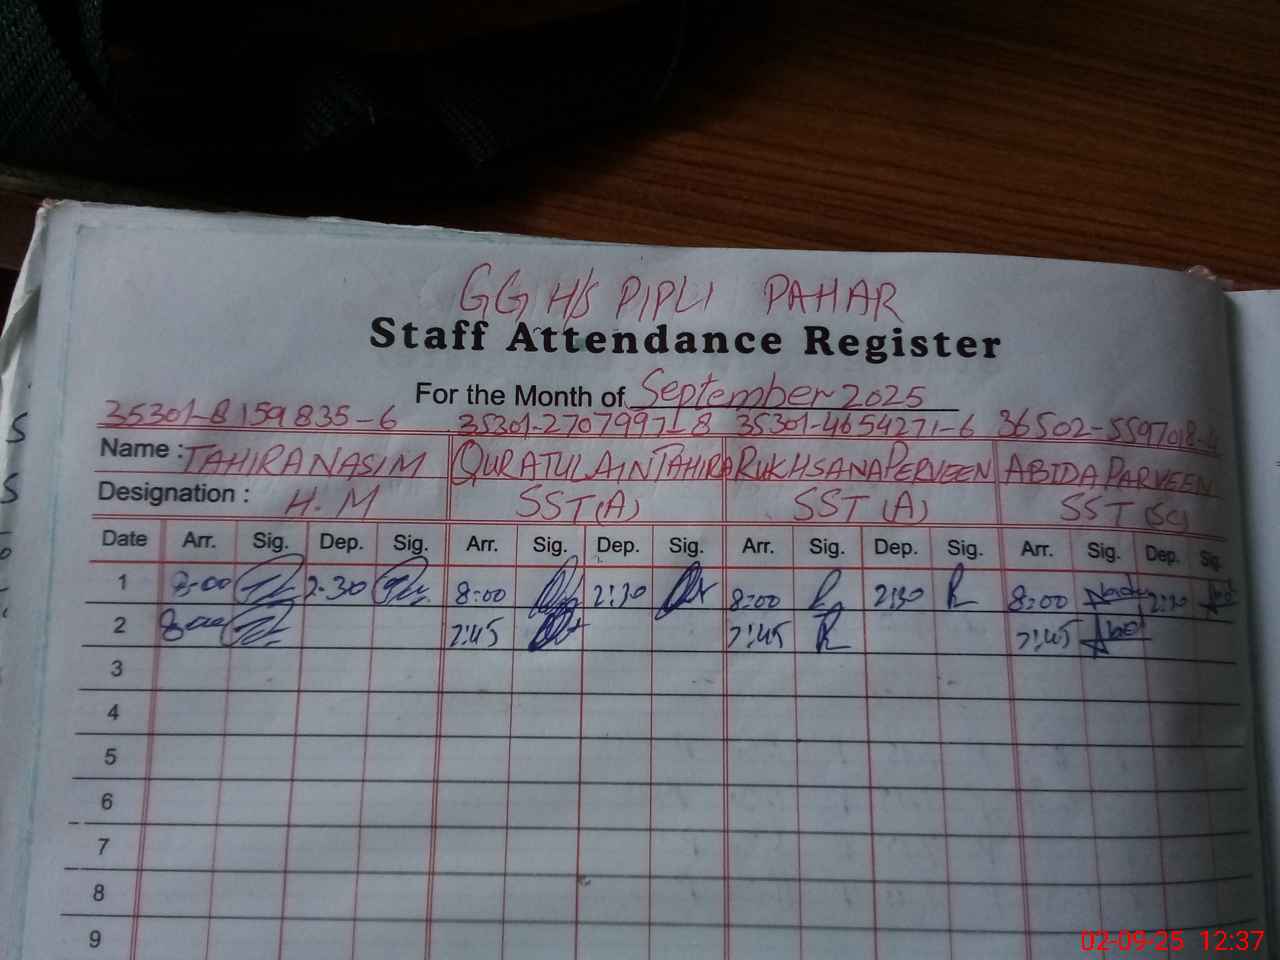 GG H/S PIPLI PAHAR
Staff Attendance Register
For the Month of September 2025
35301-8159835-6 35301-2707997-8 35301-4654271-6 36502-5597018-4
Name : TAHIRA NASIM QURATULAIN TAHIRA RUKHSANA PERVEEN ABIDA PARVEEN
Designation : H.M SST (A) SST (A) SST (SC)
Date Arr. Sig. Dep. Sig. Arr. Sig. Dep. Sig. Arr. Sig. Dep. Sig. Arr. Sig. Dep. Sig.
1 8-00 2-30 8:00 2:30 8:00 2:30 8:00 2:30
2 8-00 7:45 7:45 7:45
3
4
5
6
7
8
9
02-09-25 12:37